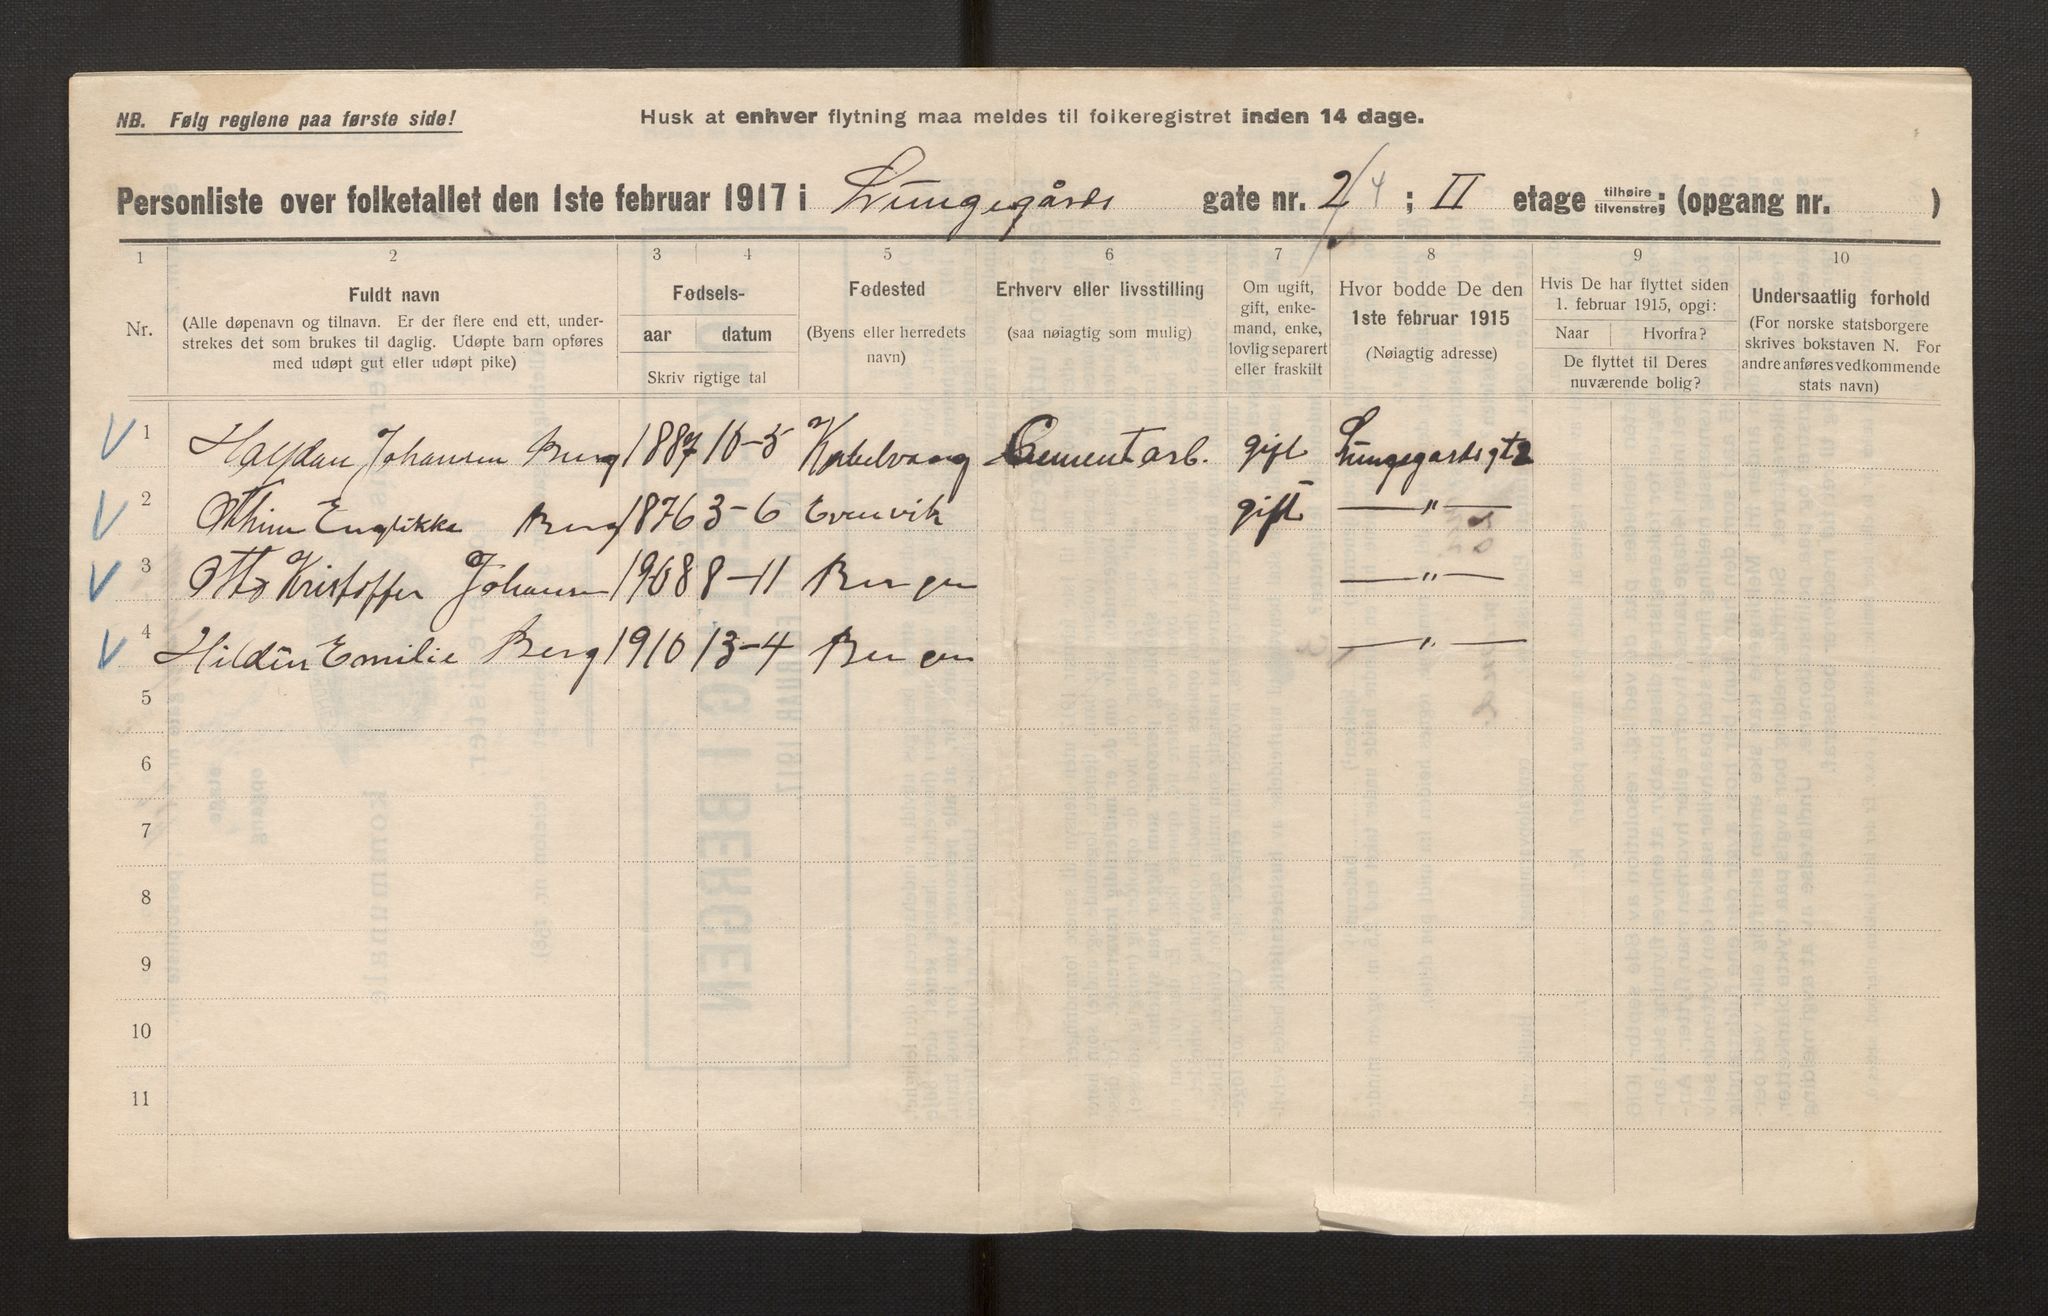 NB. Følg reglene paa første side!
Husk at enhver flytning maa meldes til folkeregistret inden 14 dage.
Personliste over folketallet den 1ste februar 1917 i Lungegårds gate nr. 2/4 ; II etage tilhøire tilvenstre; (opgang nr. )
1 2 3 4 5 6 7 8 9 10
Nr.
Fuldt navn
(Alle døpenavn og tilnavn. Er der flere end ett, under-
strekes det som brukes til daglig. Udøpte barn opføres
med udøpt gut eller udøpt pike)
Fødsels-
aar datum
Skriv rigtige tal
Fødested
(Byens eller herredets
navn)
Erhverv eller livsstilling
(saa nøiagtig som mulig)
Om ugift,
gift, enke-
mand, enke,
lovlig separert
eller fraskilt
Hvor bodde De den
1ste februar 1915
(Nøiagtig adresse)
Hvis De har flyttet siden
1. februar 1915, opgi:
Naar Hvorfra?
De flyttet til Deres
nuværende bolig?
Undersaatlig forhold
(For norske statsborgere
skrives bokstaven N. For
andre anføres vedkommende
stats navn)
V 1 Halfdan Johansen Berg 1887 10-5 Kabelvaag Cementarb. gift Lungegardsgt 2
V 2 Berg 1876 3-6 Evenvik gift — " —
V 3 Otto Kristoffer Johansen 1908 8-11 Bergen — " —
V 4 Hildin Emilie Berg 1910 13-4 Bergen — " —
5
6
7
8
9
10
11